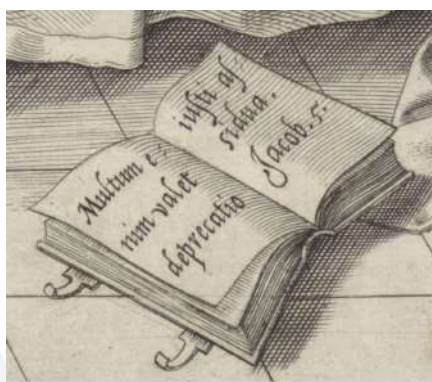 Multum e-
nim valet
deprecatio
iusti as
sidua.
Jacob. 5.